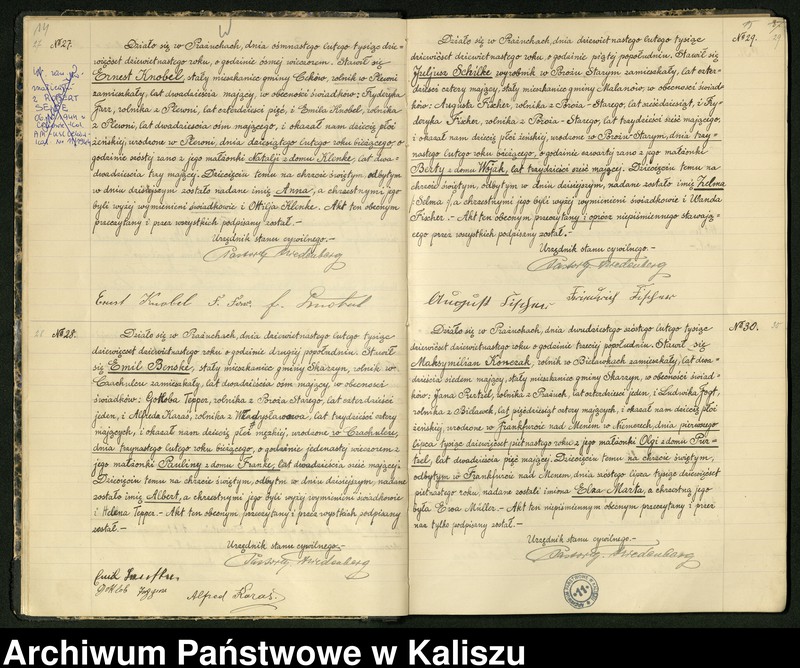 14
27
№27.
Działo się w Prażuchach, dnia ośmnastego lutego tysiąc dzie-
więćset dziewiętnastego roku, o godzinie ósmej wieczorem. Stawił się
Ernest Knobel, stały mieszkaniec gminy Ceków, rolnik w Plewni
zamieszkały, lat dwadzieścia mający, w obecności świadków: Fryderyka
rolnika z Plewni, lat czterdzieści pięć, i Emila Knobel, rolnika
z Plewni, lat dwadzieścia ośm mającego, i okazał nam dziecię płci
żeńskiej, urodzone w Plewni, dnia dziesiątego lutego roku bieżącego, o
godzinie szóstej zrano z jego małżonki Natalji z domu Klenke, lat dwa-
dwadzieścia trzy mającej. Dziecięciu temu na chrzcie świętym, odbytym
w dniu dzisiejszym zostało nadane imię Anna, a chrzestnymi jego
byli wyżej wymienieni świadkowie i Ottilja Klenke. Akt ten obecnym
przeczytany i przez wszystkich podpisany został.-
Urzędnik stanu cywilnego.-
Ernest Knobel
28
№28.
Działo się w Prażuchach, dnia dziewiętnastego lutego tysiąc
dziewięćset dziewiętnastego roku o godzinie drugiej popołudniu. Stawił
się Emil Benske, stały mieszkaniec gminy Skarżyn, rolnik w
Czachulcu zamieszkały, lat dwadzieścia ośm mający, w obecności
świadków: Gottloba Tepper, rolnika z Zborowa Starego, lat czterdzieści
jeden, i Alfreda Karaś, rolnika z Władysławowa, lat trzydzieści cztery
mających, i okazał nam dziecię płci męzkiej, urodzone w Czachulcu,
dnia trzynastego lutego roku bieżącego, o godzinie jedenastej wieczorem z
jego małżonki Pauliny z domu Franke, lat dwadzieścia sześć mającej.
Dziecięciu temu na chrzcie świętym, odbytym w dniu dzisiejszym, nadane
zostało imię Albert, a chrzestnymi jego byli wyżej wymienieni świadkowie
i Helena Tepper.- Akt ten obecnym przeczytany i przez wszystkich podpisany
został.-
Urzędnik stanu cywilnego.-
Alfred Karaś.
15
29
№29.
Działo się w Prażuchach, dnia dziewiętnastego lutego tysiąc
dziewięćset dziewiętnastego roku, o godzinie piątej popołudniu. Stawił się
Juljusz Schilke wyrobnik w Starym zamieszkały, lat czter-
dzieści cztery mający, stały mieszkaniec gminy Malanów, w obecności świad-
ków: Augusta Fischer, rolnika z Starego, lat sześćdziesiąt, i Fry-
deryka Fischer, rolnika z Starego, lat trzydzieści sześć mającego,
i okazał nam dziecię płci żeńskiej, urodzone w Starym, dnia trzy-
nastego lutego roku bieżącego, o godzinie czwartej zrano z jego małżonki
Berty z domu Wojak, lat trzydzieści sześć mającej. Dziecięciu temu na
chrzcie świętym, odbytym w dniu dzisiejszym, nadane zostało imię Zelma
/Selma/, a chrzestnymi jego byli wyżej wymienieni świadkowie i Wanda
Fischer.- Akt ten obecnym przeczytany i oprócz niepiśmiennego stawają-
cego przez wszystkich podpisany został.-
Urzędnik stanu cywilnego.-
August Fischer
Friedrich Fischer
30
№30.
Działo się w Prażuchach, dnia dwudziestego szóstego lutego tysiąc
dziewięćset dziewiętnastego roku o godzinie trzeciej popołudniu. Stawił się
Maksymilian Konczak, rolnik w zamieszkały, lat dwa-
dzieścia siedem mający, stały mieszkaniec gminy Skarżyn, w obecności świad-
ków: Jana rolnika z Prażuch, lat czterdzieści jeden, i Ludwika Fogt,
rolnika z lat pięćdziesiąt cztery mających, i okazał nam dziecię płci
żeńskiej, urodzone w Frankfurcie nad Menem w Niemczech, dnia pierwszego
lipca tysiąc dziewięćset piętnastego roku z jego małżonki Olgi z domu
lat dwadzieścia pięć mającej. Dziecięciu temu na chrzcie świętym,
odbytym w Frankfurcie nad Menem, dnia szóstego lipca tysiąc dziewięćset
piętnastego roku, nadane zostały imiona Elza Marta, a chrzestną jego
była Ewa Müller.- Akt ten niepiśmiennym obecnym przeczytany i przez
nas tylko podpisany został.-
Urzędnik stanu cywilnego.-
Archiwum Państwowe w Kaliszu